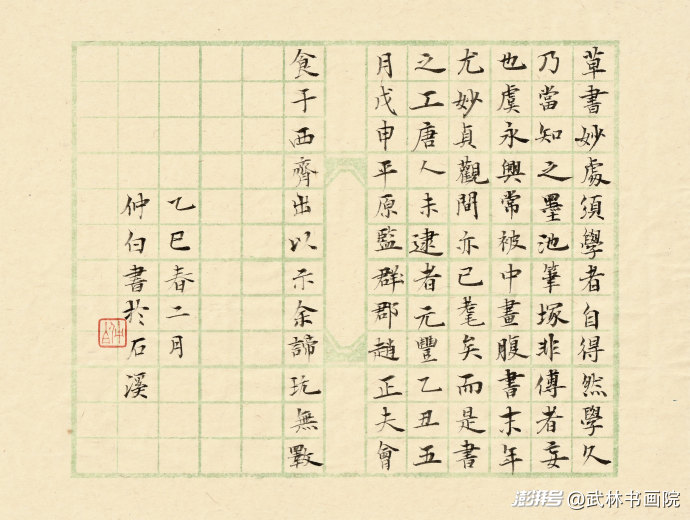 草書妙處須學者自得然學久
乃當知之墨池筆塚非傳者妄
也虞永興常被中畫腹書末年
尤妙貞觀間亦已耄矣而是書
之工唐人未逮者元豐乙丑五
月戊申平原監群郡趙正夫會
食于西齊出以示余諦玩無斁
乙巳春二月
仲白書於石溪
澎湃号 @武林书画院